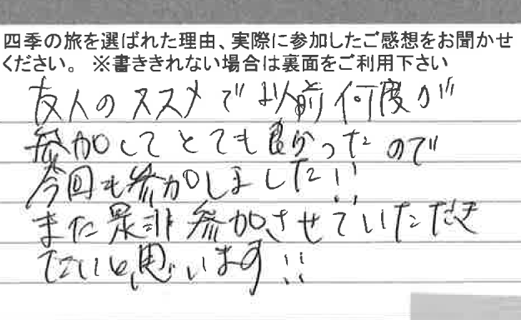 四季の旅を選ばれた理由、実際に参加したご感想をお聞かせ
ください。 ※書ききれない場合は裏面をご利用下さい
友人のススメで以前何度が
参加してとても良かったので
今回も参加しました!!
また是非参加させていただき
たいと思います!!